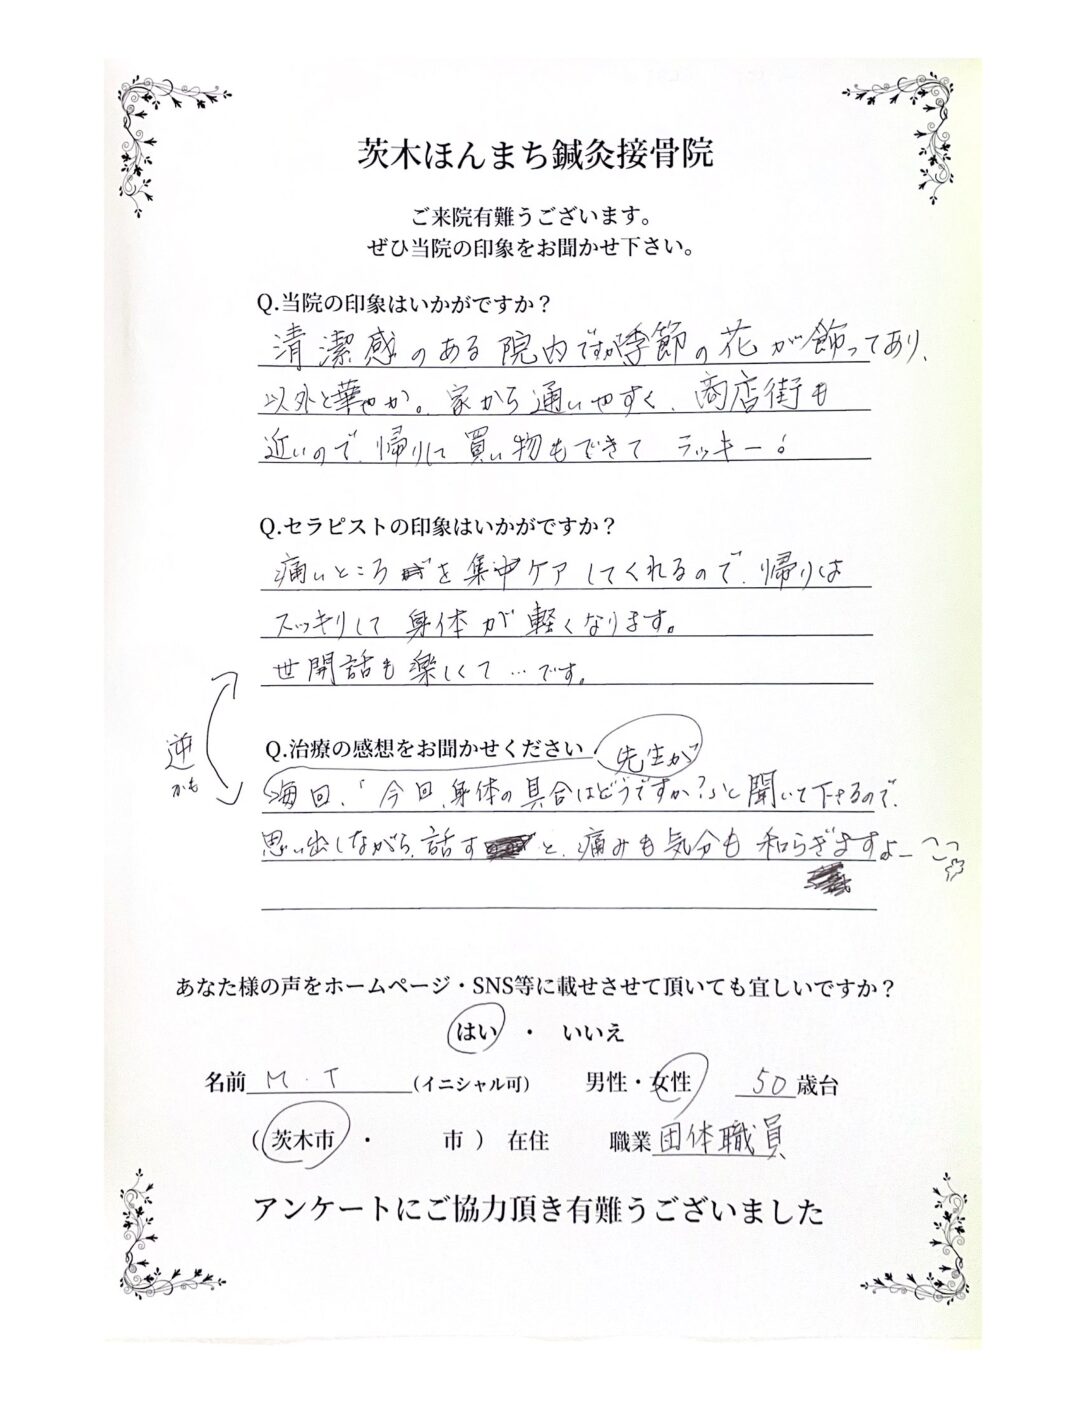 茨木ほんまち鍼灸接骨院
ご来院有難うございます。
ぜひ当院の印象をお聞かせ下さい。
Q.当院の印象はいかがですか？
清潔感のある院内ですが季節の花が飾ってあり、
以外と華やか。家から通いやすく、商店街も
近いので、帰りに買い物もできてラッキー！
Q.セラピストの印象はいかがですか？
痛いところを集中ケアしてくれるので、帰りは
スッキリして身体が軽くなります。
世間話も楽しくて…です。
逆かも
Q.治療の感想をお聞かせください
先生が
毎回、「今回、身体の具合はどうですか？」と聞いて下さるので、
思い出しながら、話すと、痛みも気分も和らぎますよー
あなた様の声をホームページ・SNS等に載せさせて頂いても宜しいですか？
はい ・ いいえ
名前 M.T (イニシャル可) 男性・女性 50歳台
(茨木市・ 市) 在住 職業 団体職員
アンケートにご協力頂き有難うございました